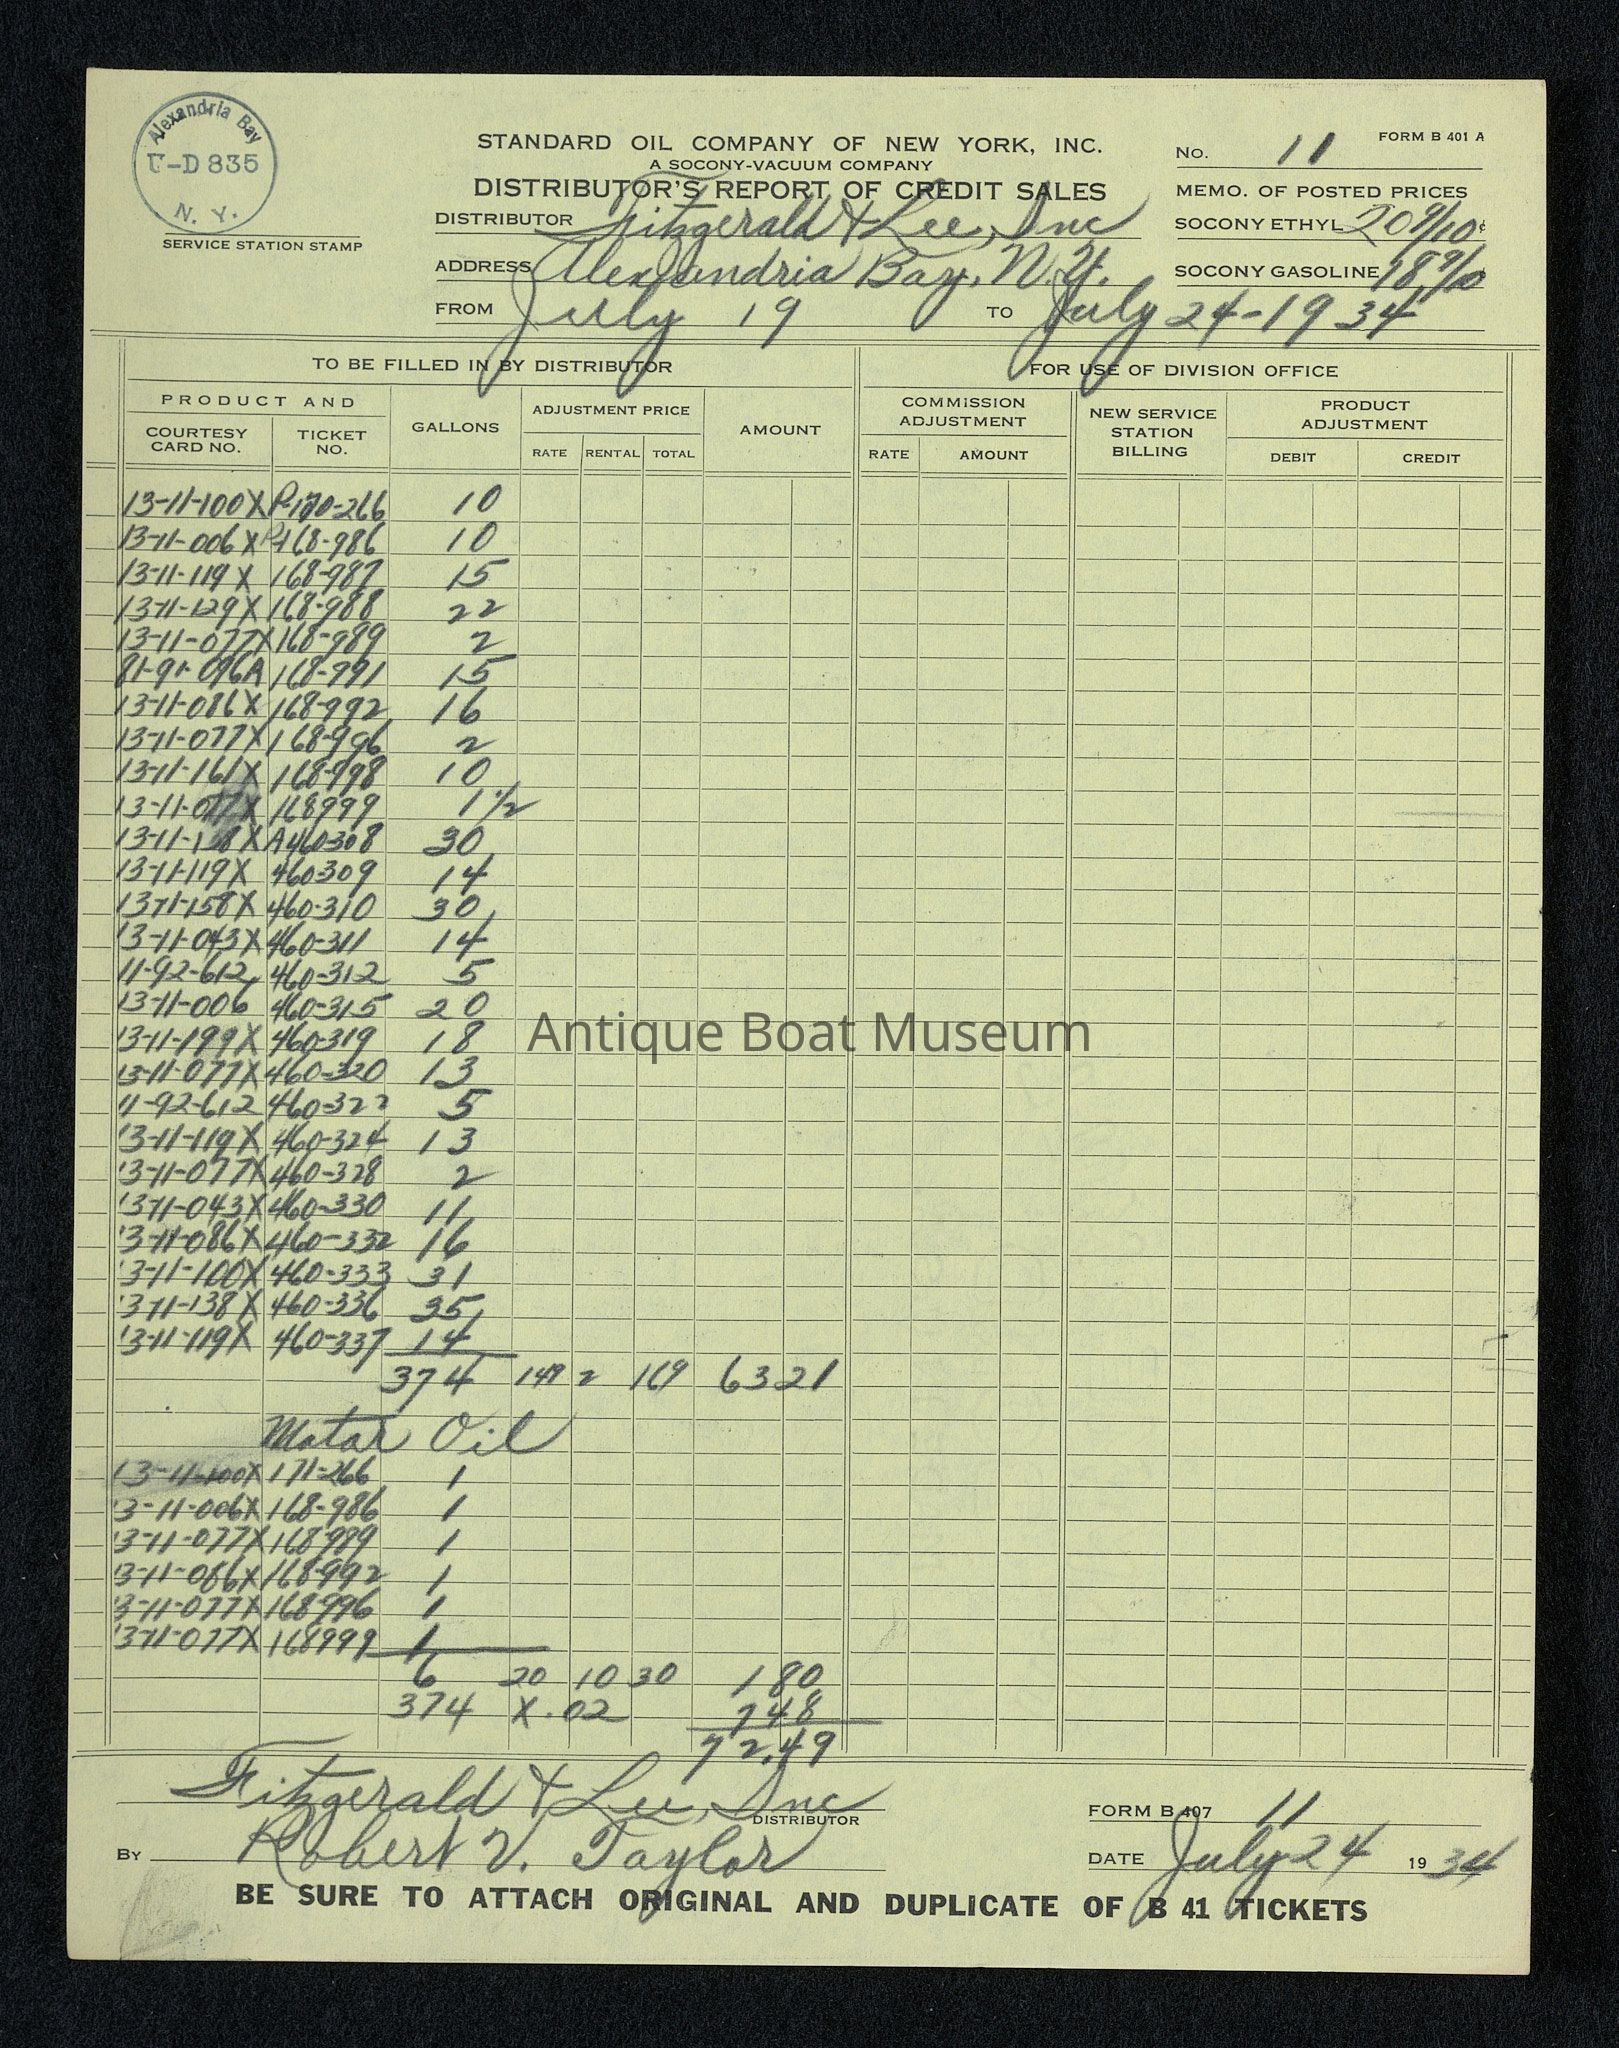 Alexandria Bay
U-D 835
N. Y.
SERVICE STATION STAMP
STANDARD OIL COMPANY OF NEW YORK, INC.
A SOCONY-VACUUM COMPANY
DISTRIBUTOR'S REPORT OF CREDIT SALES
DISTRIBUTOR Fitzgerald & Lee, Inc
ADDRESS Alexandria Bay, N.Y.
FROM July 19 TO July 24-1934
FORM B 401 A
No. 11
MEMO. OF POSTED PRICES
SOCONY ETHYL 20 9/10¢
SOCONY GASOLINE 18 9/10
TO BE FILLED IN BY DISTRIBUTOR FOR USE OF DIVISION OFFICE
PRODUCT AND
COURTESY CARD NO. TICKET NO. GALLONS ADJUSTMENT PRICE RATE RENTAL TOTAL AMOUNT COMMISSION ADJUSTMENT RATE AMOUNT NEW SERVICE STATION BILLING PRODUCT ADJUSTMENT DEBIT CREDIT
13-11-100X 10
13-11-006X 168-986 10
13-11-119X 168-987 15
13-11-129X 168-988 22
13-11-077X 168-989 2
81-91-096A 168-991 15
13-11-086X 168-992 16
13-11-077X 168-996 2
13-11-161X 168-998 10
13-11-077X 168999 1 1/2
A460308 30
13-11-119X 460309 14
13-11-158X 460-310 30
13-11-043X 460-311 14
11-92-612 460-312 5
13-11-006 460-315 20
13-11-199X 460-319 18
13-11-077X 460-320 13
11-92-612 460-322 5
13-11-119X 460-324 13
13-11-077X 460-328 2
13-11-043X 460-330 11
13-11-086X 460-332 16
13-11-100X 460-333 31
13-11-138X 460-336 35
13-11-119X 460-337 14
374 149 2 169 6321
Motor Oil
13-11-100X 171-266 1
13-11-006X 168-986 1
13-11-077X 168-989 1
13-11-086X 168-992 1
13-11-077X 168996 1
13-11-077X 168999 1
6 20 10 30 180
374 X .02 748
72.49
Antique Boat Museum
Fitzgerald & Lee, Inc
DISTRIBUTOR
BY Robert V. Taylor
FORM B 407 11
DATE July 24 1934
BE SURE TO ATTACH ORIGINAL AND DUPLICATE OF B 41 TICKETS